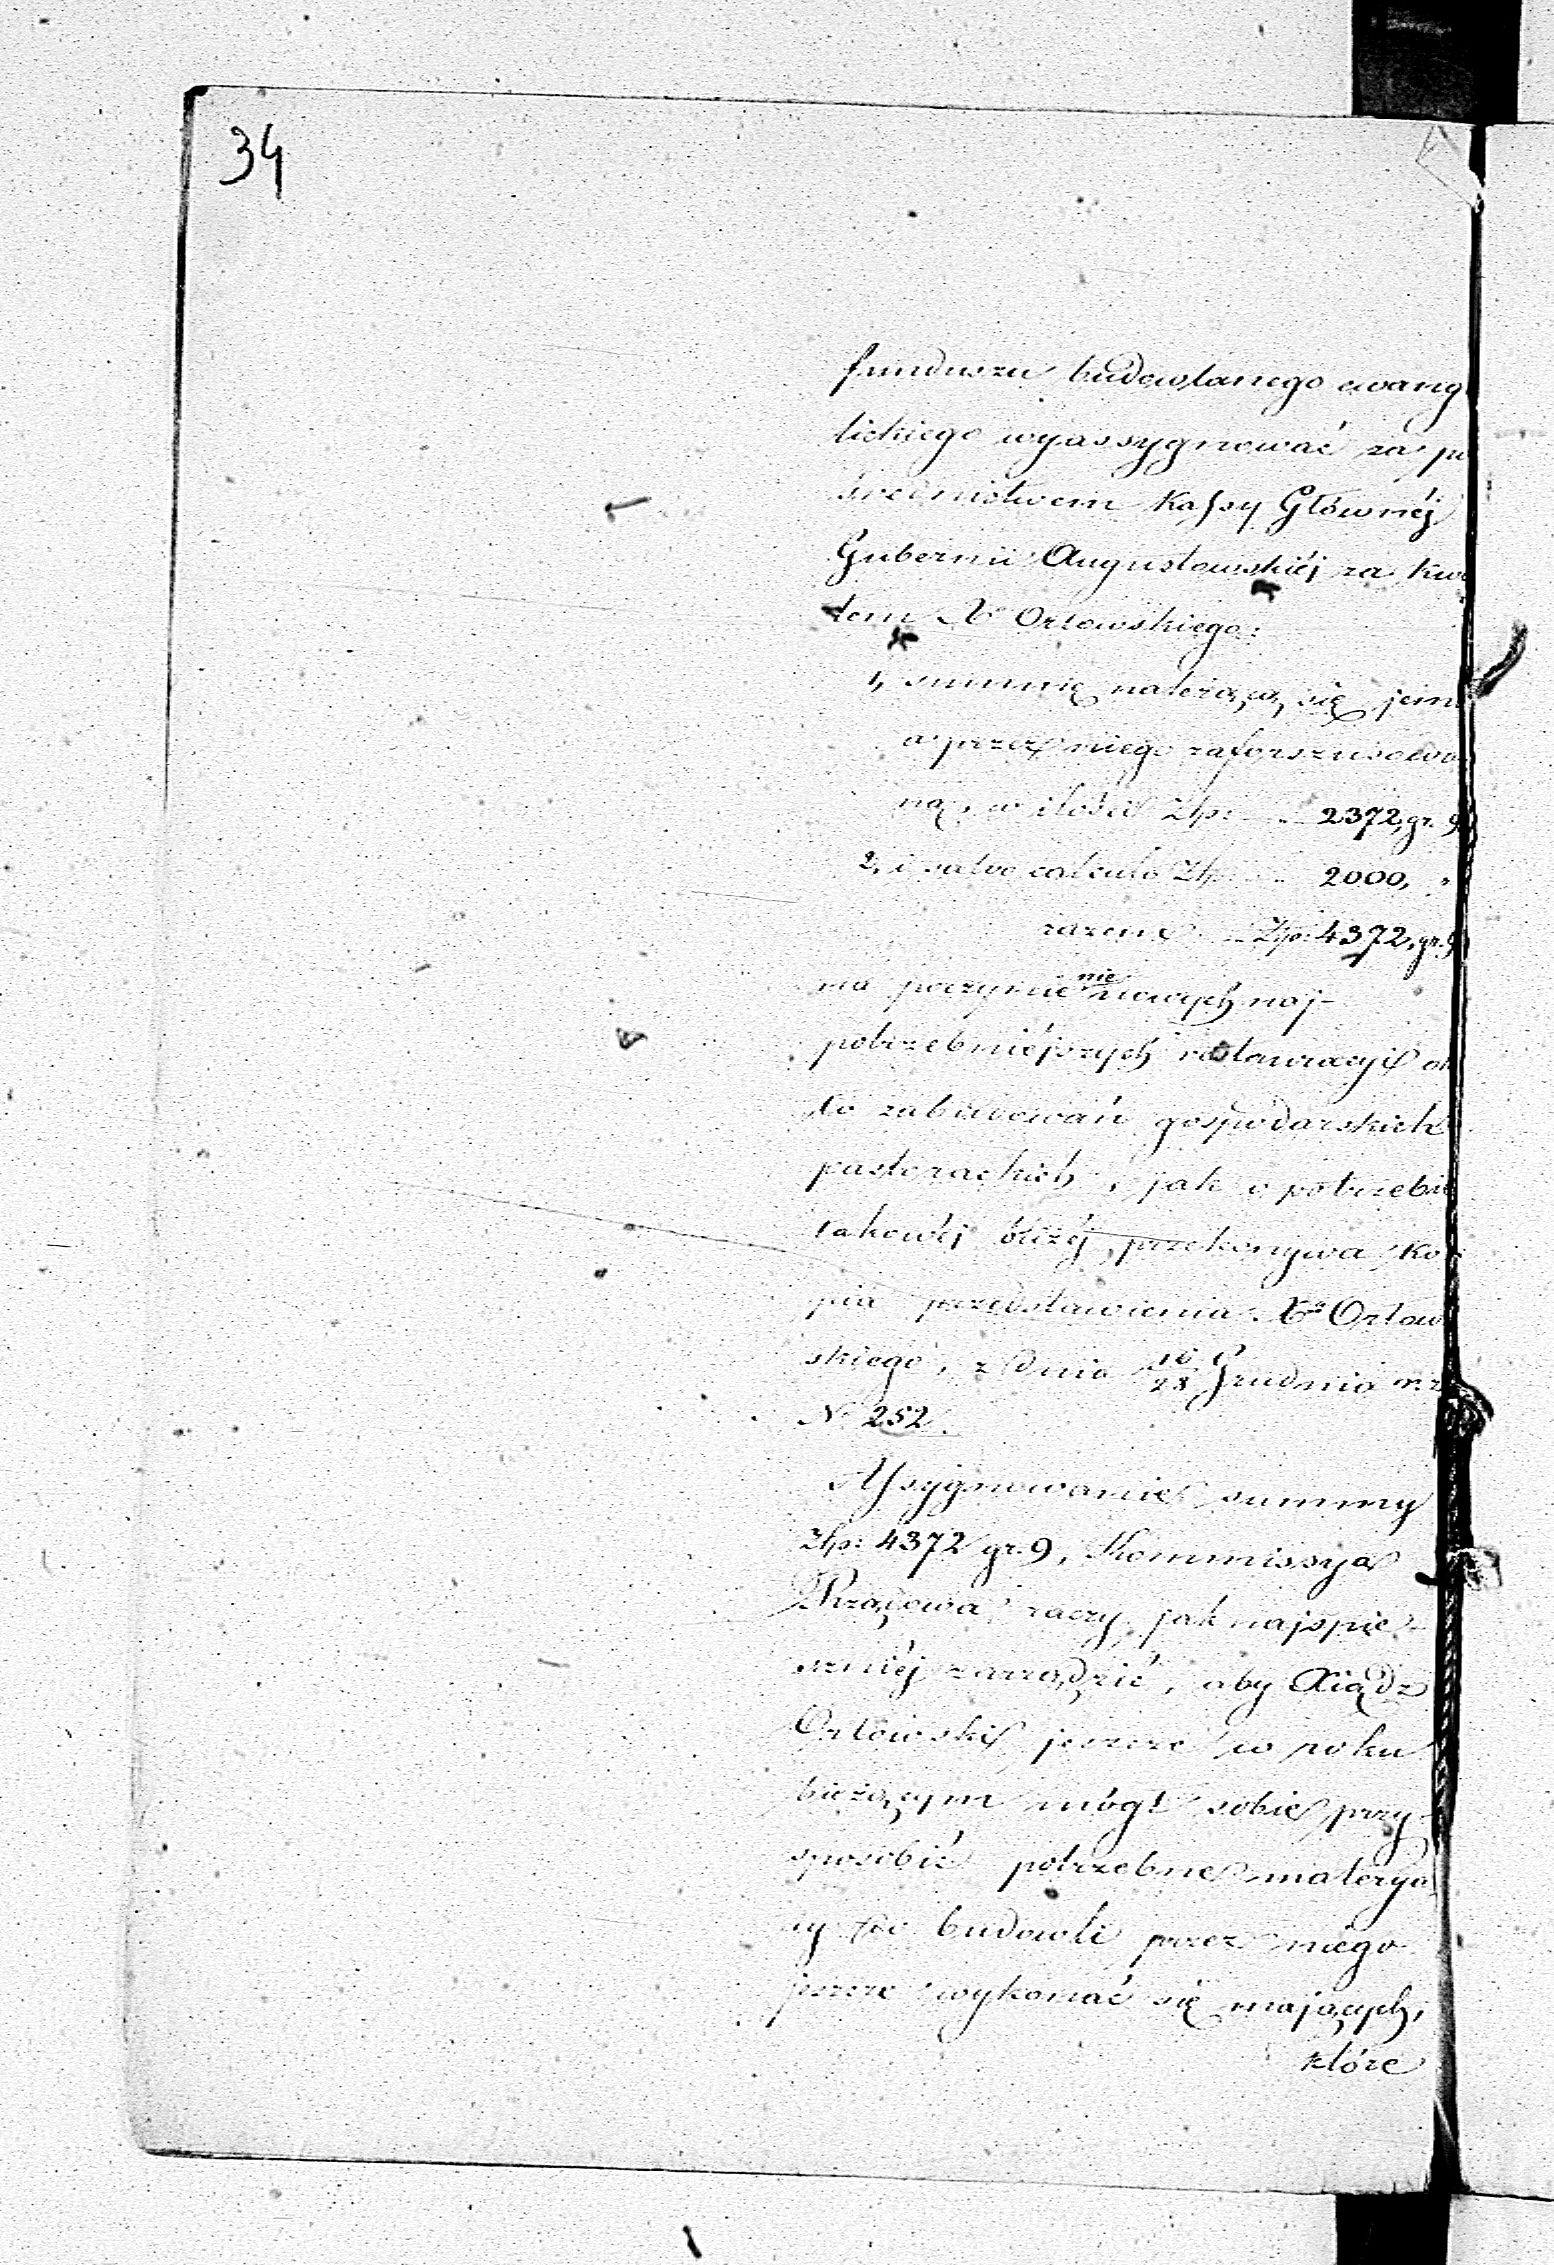 34
funduszu budowlanego ewang
lickiego wyassygnować za po
średnictwem Kassy Głównéj
Gubernii Augustowskiéj za kwi
tem Xa Orłowskiego:
1, summę należącą się jemu
a przez niego zaforszusowa
ną, w ilości Złp: 2372, gr. 9
2, i salvo calculo Złp. 2000, "
razem Złp: 4372, gr. 9
na poczynienie nowych naj-
potrzebniéjszych restauracyi ok
ło zabudowań gospodarskich
pastorackich, jak o potrzebie
takowéj bliżéj przekonywa ko-
pia przedstawienia Xa Orłow
skiego, z dnia 16/28 Grudnia m. r.
N 252.
Assygnowanie summy
Złp: 4372 gr. 9, Kommissya
Rządowa raczy jak najspie-
szniéj zarządzić, aby Xiądz
Orłowski jeszcze w roku
bieżącym mógł sobie przy-
sposobić potrzebne materya
ły do budowli przez niego
jeszcze wykonać się mających,
które